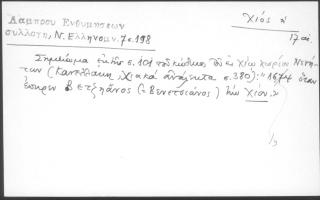 Λάμπρου Ἐνθυμήσεων
συλλογή, Ν. Ἑλληνομν. 7 σ. 198
Χίος
17 αἰ.
Σημείωμα ἐν τῷ σ. 101 τοῦ κώδικος τοῦ ἐν Χίῳ χωρίου Νενή-
των (Κανελλάκη Χιακὰ ἀνάλεκτα σ. 380): "1674 ὅταν
ἔπηρεν ὁ Βετζηάνος (= Βενετσιάνος) τὴν Χίον."